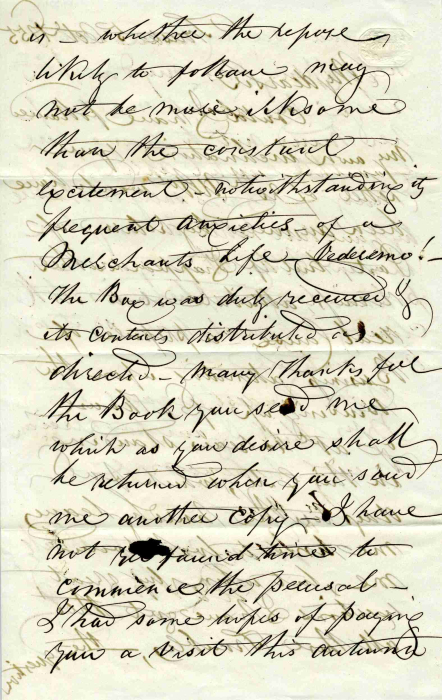 is – whether the repose
likely to follow may
not be more irksome
than the constant
excitement notwithstanding its
frequent anxieties – of a
Merchants Life – Vederemo! –
The Box was duly received &
its contents distributed as
directed – many thanks for
the Book you send me
which as you desire shall
be returned when you send
me another copy – I have
not found time to
commence the perusal –
I had some hopes of paying
you a visit this autumn